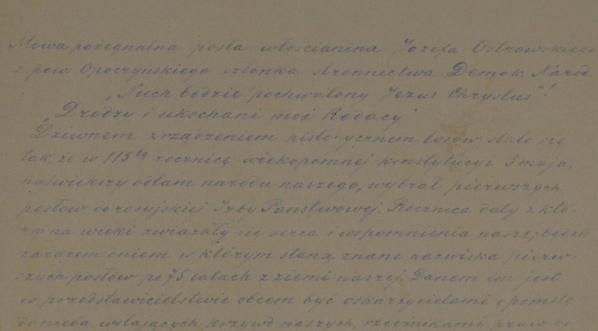 Mowa pożegnalna posła włościanina Józefa Ostrowskiego
z pow Opoczyńskiego członka stronnictwa Demok. Narod.
„Niech będzie pochwalony Jezus Chrystus"!
„Drodzy i ukochani moi Rodacy"
Dziwnem zrządzeniem histo-ycznem losów stało się
tak że w 115tą rocznicę wiekopomnej konstytucyi 3 maja
największy odłam narodu naszego, wybrał pierwszych
posłów do rosyjskiej Izby Państwowej. Rocznica daty z któ-
rą na wieki związały się serca i wspomnienia nasze, będzie
zarazem dniem w którym staną znane nazwiska pierw-
szych posłów po 75 latach z ziemi naszej. Danem im jest
w przedstawicielstwie obcem być oskarżycielami o pomstę
do nieba wołających krzywd naszych, rzecznikami praw